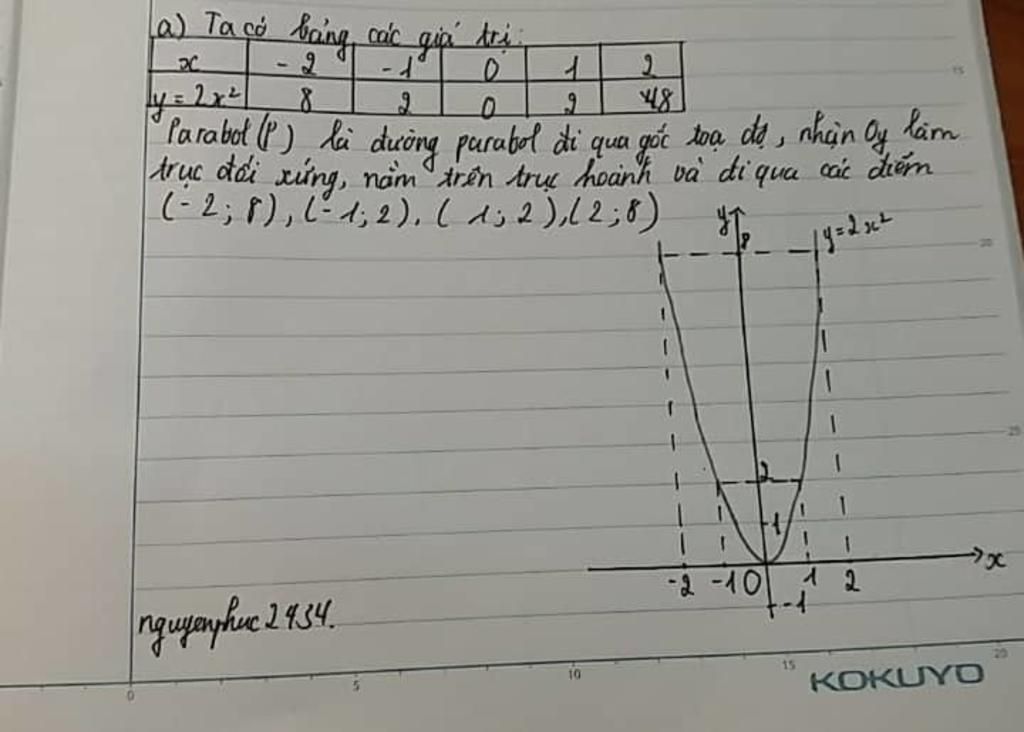 a) Ta có bảng các giá trị:
x -2 -1 0 1 2
y=2x² 8 2 0 2 8
Parabol (P) là đường parabol đi qua gốc toạ độ, nhận Oy làm
trục đối xứng, nằm trên trục hoành và đi qua các điểm
(-2; 8), (-1; 2), (1; 2), (2; 8)
y
8
y=2x²
2
1
x
-2 -1 O 1 2
-1
nguyenphuc2434.
0 5 10 15 20
15
20
25
KOKUYO